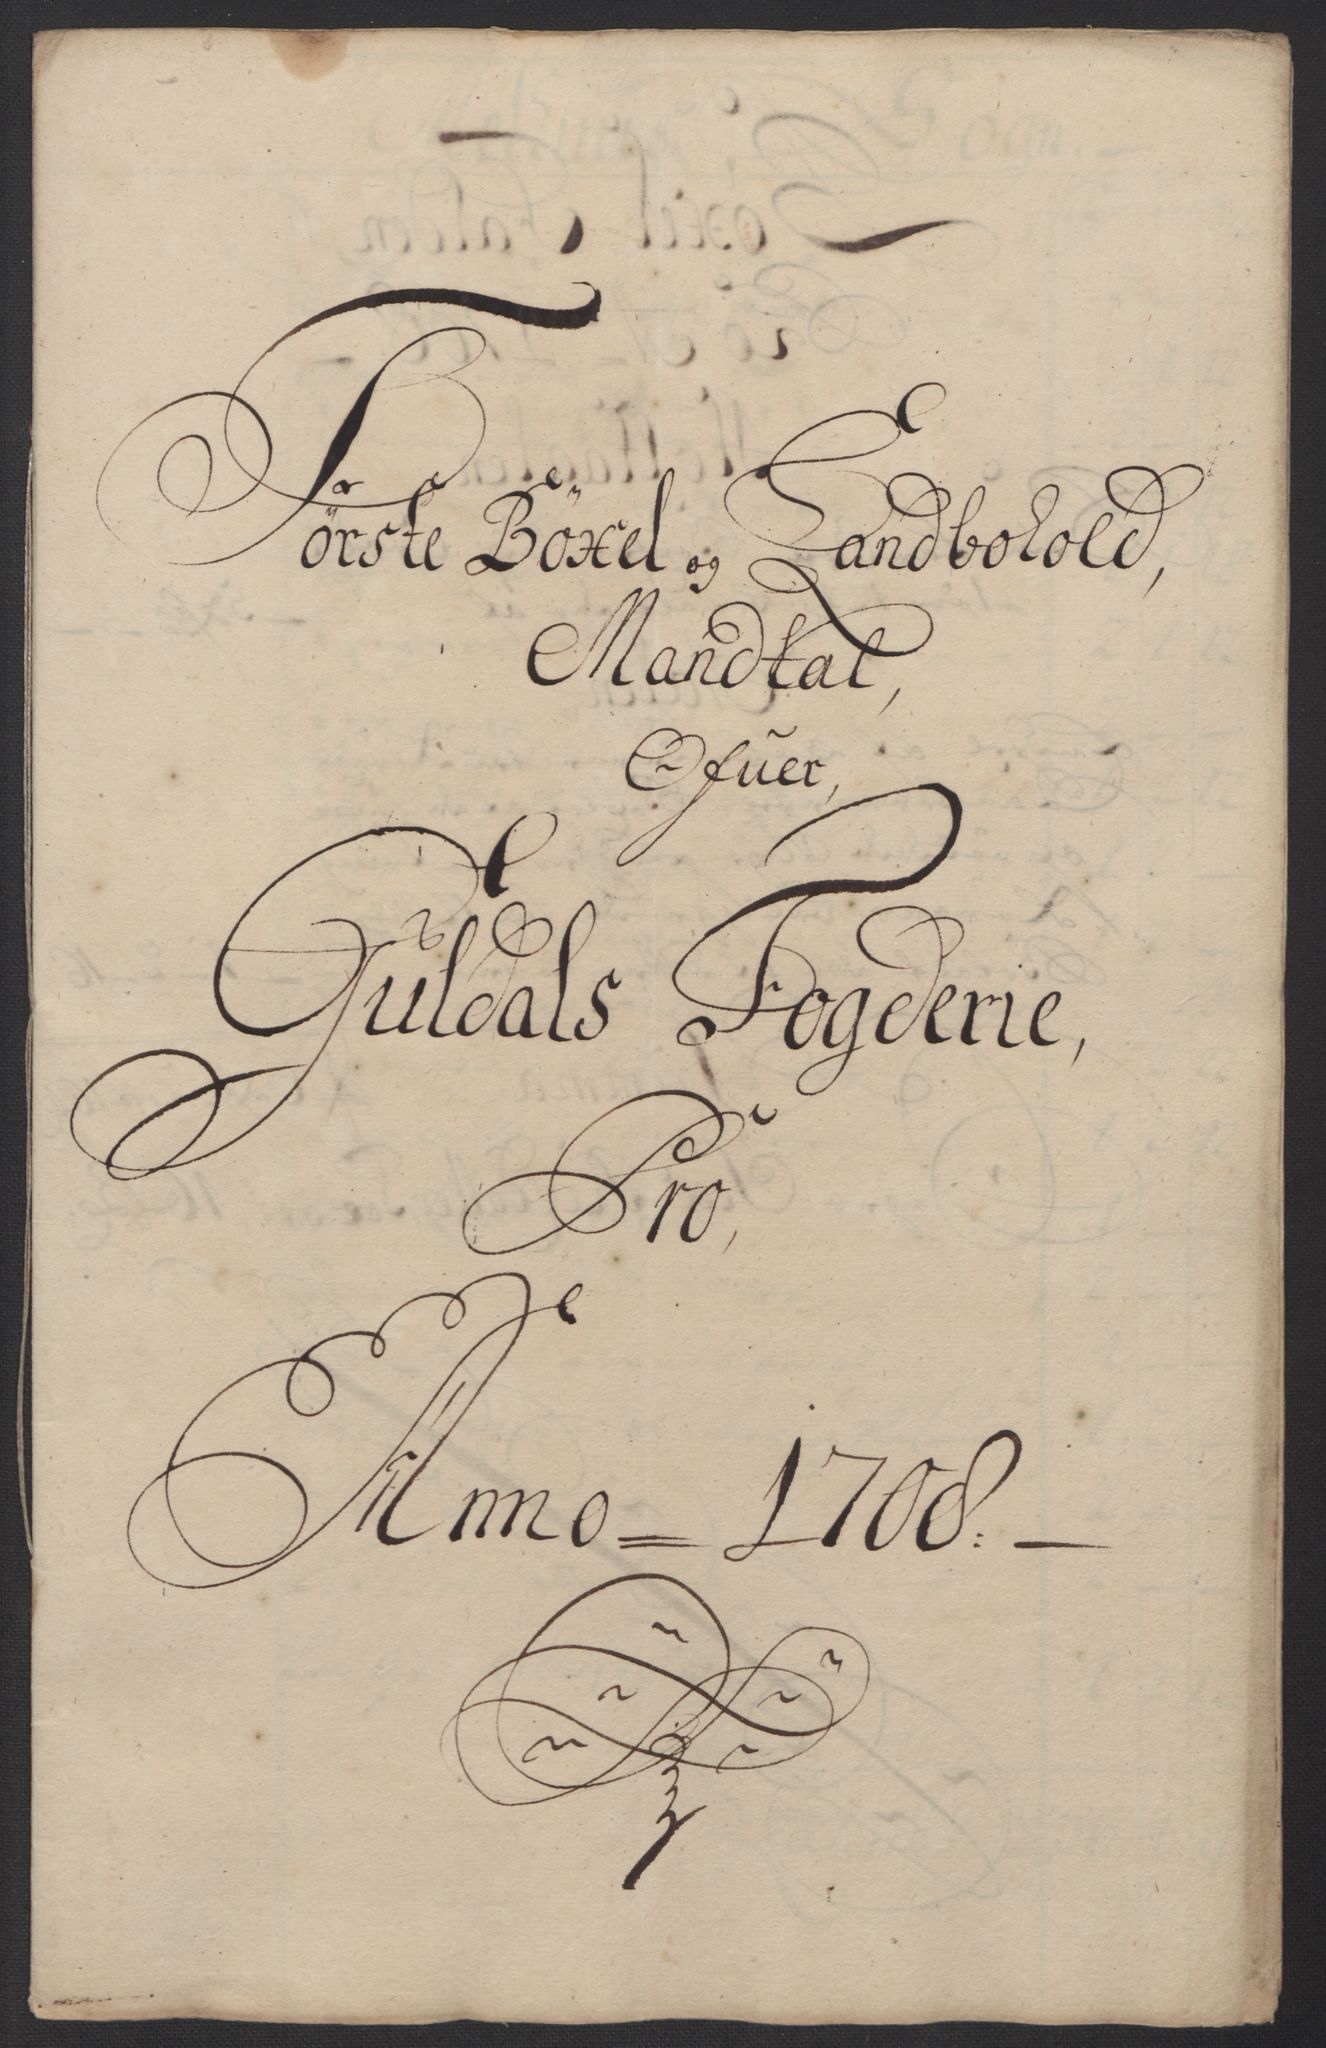 Förste Böxel og Landbohold,
Mandtal,
Ofuer,
Guldals Fogderie,
Pro,
Anno = 1708. —